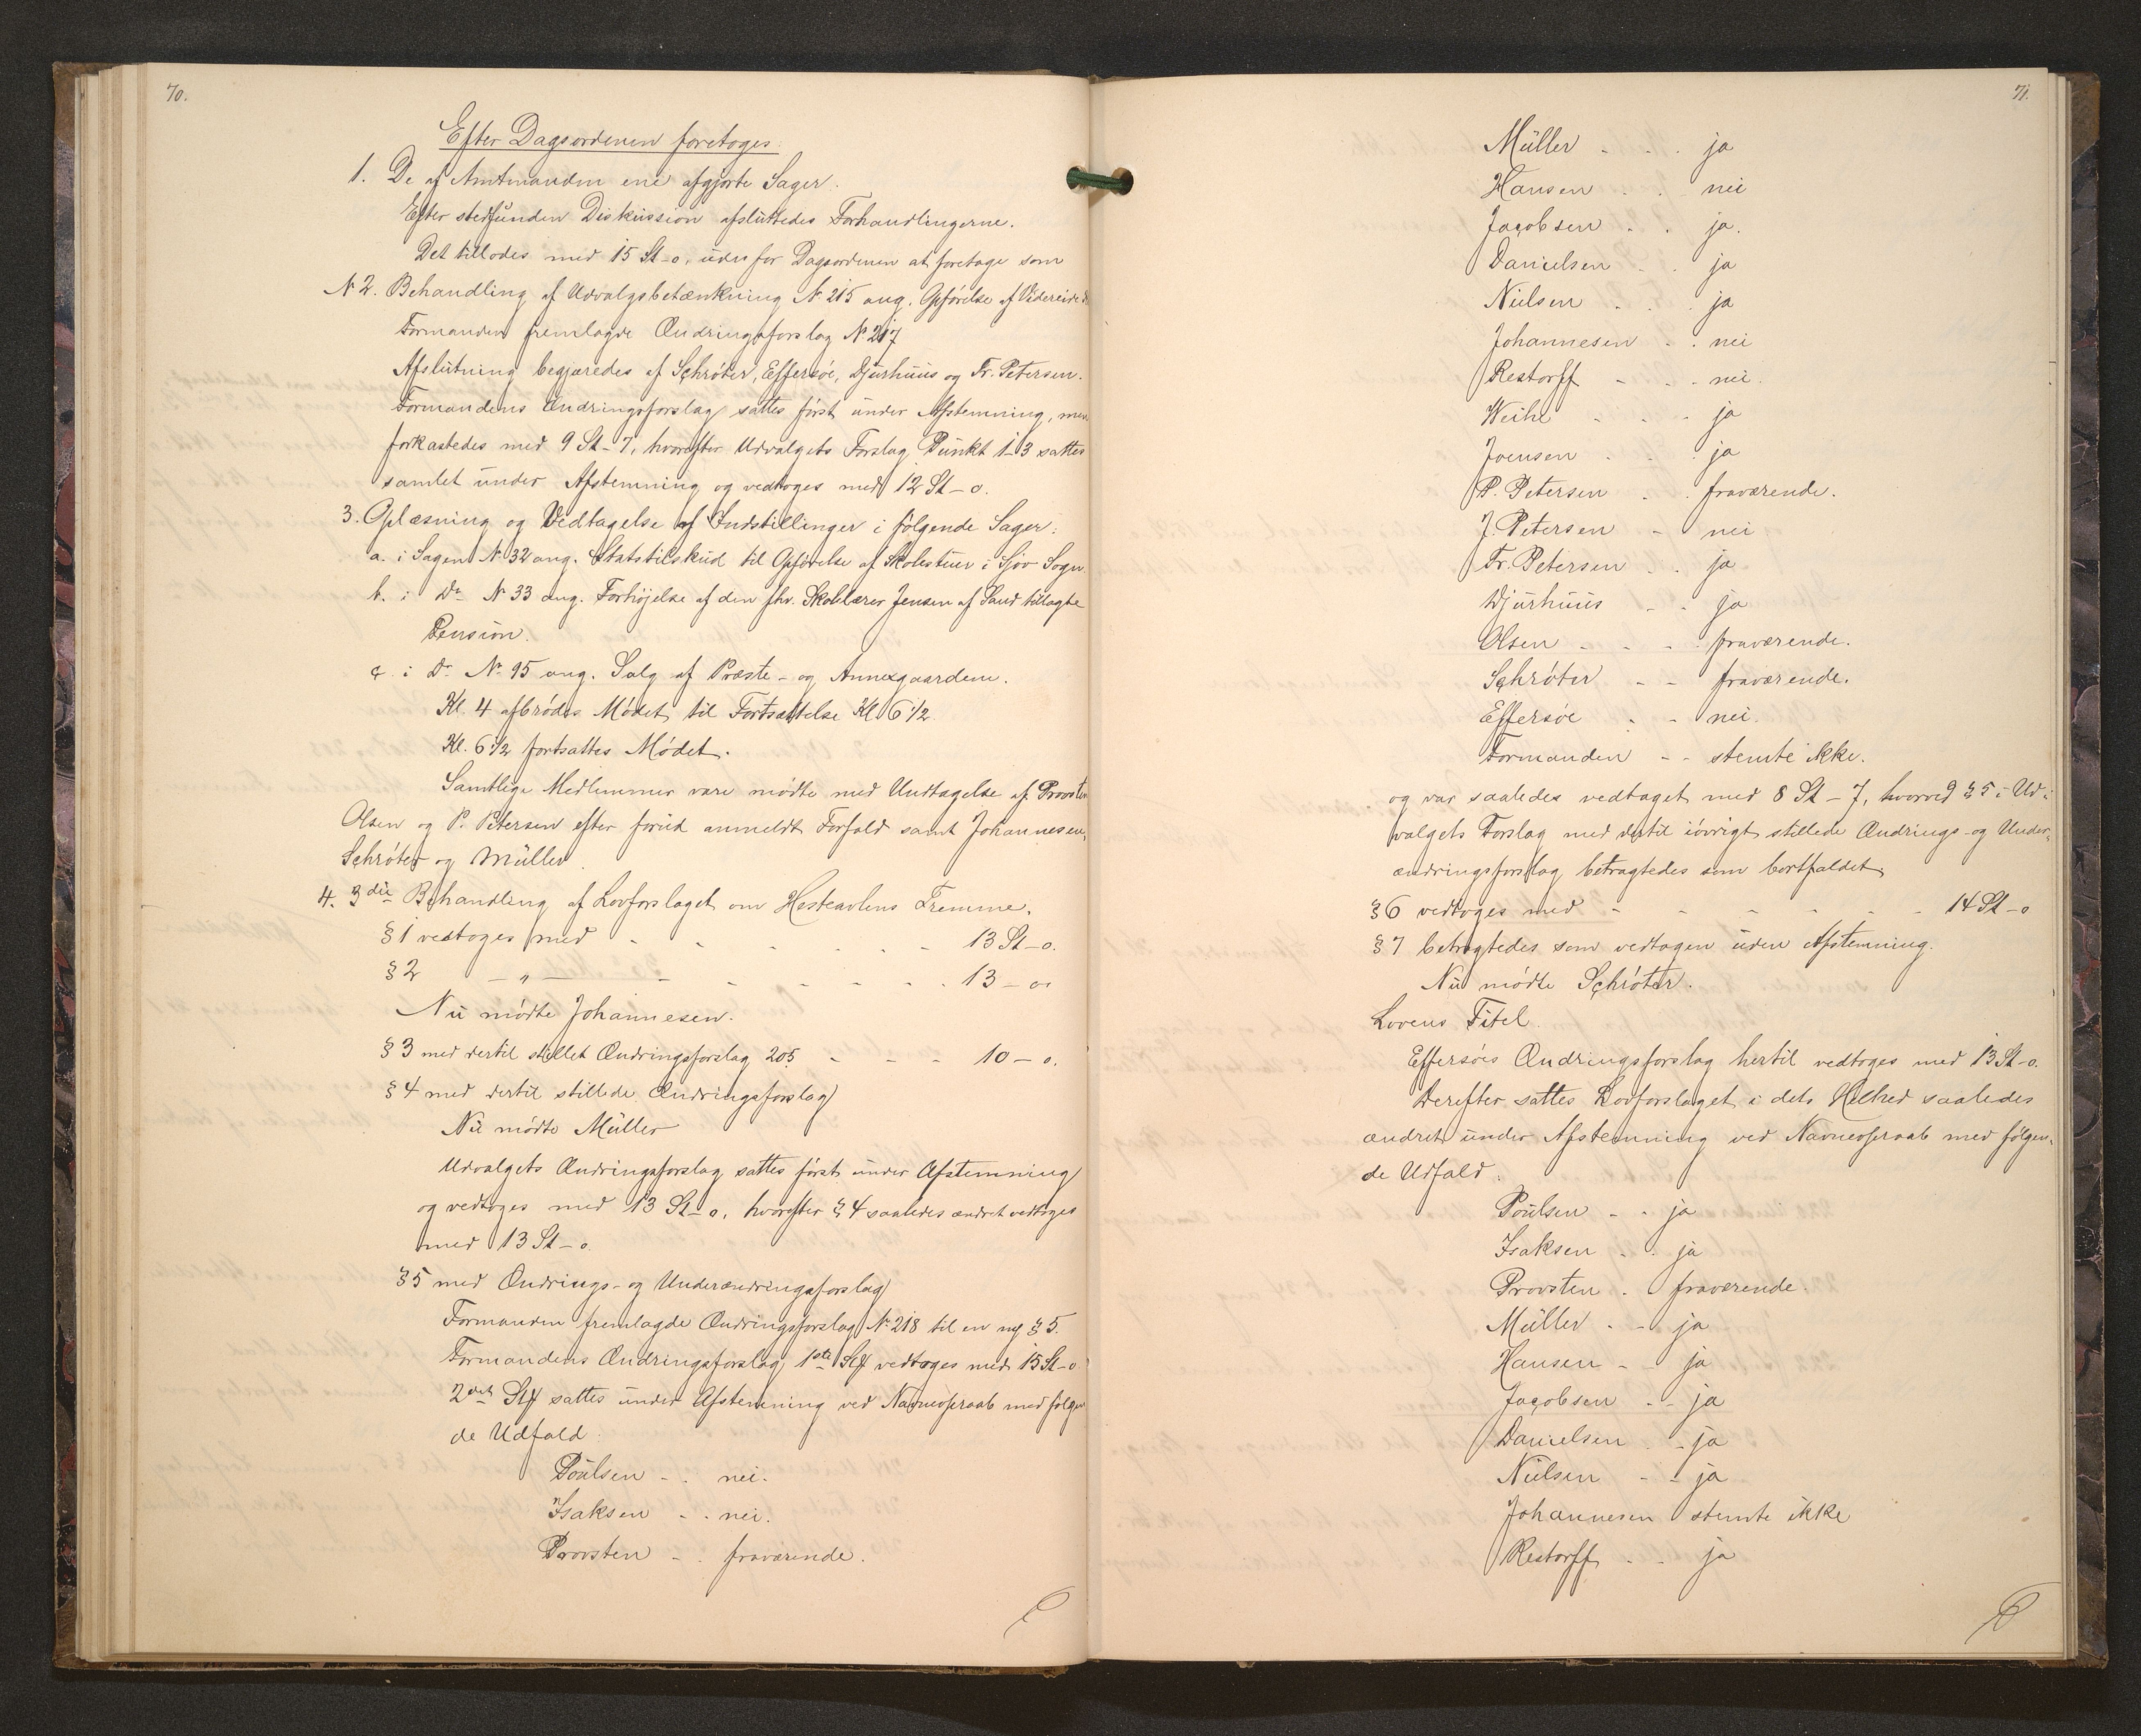 70.
Efter Dagsordenen foretoges:
1. De af Amtmanden ene afgjorte Sager.
Efter stedfunden Diskussion afsluttedes Forhandlingerne.
Det tillodes med 15 St-0. uden for Dagsordenen at foretage som
N 2. Behandling af Udvalgsbetænkning № 215 ang. Opførelse af
Formanden fremlagde Ændringsforslag № 217
Afslutning begjæredes af Schrøter, Effersøe, Djurhuus og Fr. Petersen.
Formandens Ændringsforslag sattes først under Afstemning, men
forkastedes med 9 St-7, hvorefter Udvalgets Forslag Punkt 1-3 sattes
samlet under Afstemning og vedtoges med 12 St-0.
3. Oplæsning og Vedtagelse af Indstillinger i følgende Sager:
a. i Sagen № 32 ang. Statstilskud til Opførelse af Skolestuer i Sjov Sogn.
b. i Do № 33 ang. Forhøjelse af den fhv. Skolelærer Jensen af Sand tillagte
Pension.
c. i Do № 95 ang. Salg af Præste- og Annexgaardene.
Kl. 4 afbrødes Mødet til Fortsættelse Kl. 6 1/2
Kl. 6 1/2 fortsattes Mødet.
Samtlige Medlemmer vare mødte med Undtagelse af Provsten
Olsen og P. Petersen efter forud anmeldt Forfald samt Johannesen,
Schrøter og Müller.
4. 3die Behandling af Lovforslaget om Hesteavlens Fremme.
§ 1 vedtoges med - - - - - - 13 St-0.
§ 2 - " - - - - - - 13 - 0.
Nu mødte Johannesen.
§ 3 med dertil stillet Ændringsforslag 205 - - - 10 - 0.
§ 4 med dertil stillede Ændringsforslag
Nu mødte Müller
Udvalgets Ændringsforslag sattes først under Afstemning
og vedtoges med 13 St-0, hvorefter § 4 saaledes ændret vedtoges
med 13 St-0.
§ 5 med Ændrings- og Underændringsforslag
Formanden fremlagde Ændringsforslag № 218 til en ny § 5.
Formandens Ændringsforslag 1ste Stk vedtoges med 15 St-0
2det Stk sattes under Afstemning ved Navneopraab med følgen
de Udfald:
Poulsen - - nei.
Isaksen - - nei.
Provsten - - fraværende.
71.
Müller - - - ja
Hansen - - nei
Jacobsen - - ja.
Danielsen - - ja
Nielsen - - - ja
Johannesen - - nei
Restorff - - - nei.
Weihe - - - ja
Joensen - - - ja
P. Petersen - - fraværende.
J. Petersen - nei
Fr. Petersen - - ja
Djurhuus - - ja
Olsen - - - fraværende.
Schrøter - - fraværende.
Effersøe - - nei.
Formanden - - stemte ikke.
og var saaledes vedtaget med 8 St-7, hvorved § 5 i Ud-
valgets Forslag med dertil iøvrigt stillede Ændrings- og Under-
ændringsforslag betragtedes som bortfaldet
§ 6 vedtoges med - - - - - - 14 St-0
§ 7 betragtedes som vedtagen uden Afstemning.
Nu mødte Schrøter.
Lovens Titel.
Effersøes Ændringsforslag hertil vedtoges med 13 St-0.
Derefter sattes Lovforslaget i dets Helhed saaledes
ændret under Afstemning ved Navneopraab med følgen-
de Udfald:
Poulsen - - ja
Isaksen - - ja
Provsten - fraværende.
Müller - - ja
Hansen - - ja
Jacobsen - - ja
Danielsen - - ja
Nielsen - - ja
Johannesen stemte ikke
Restorff - - ja